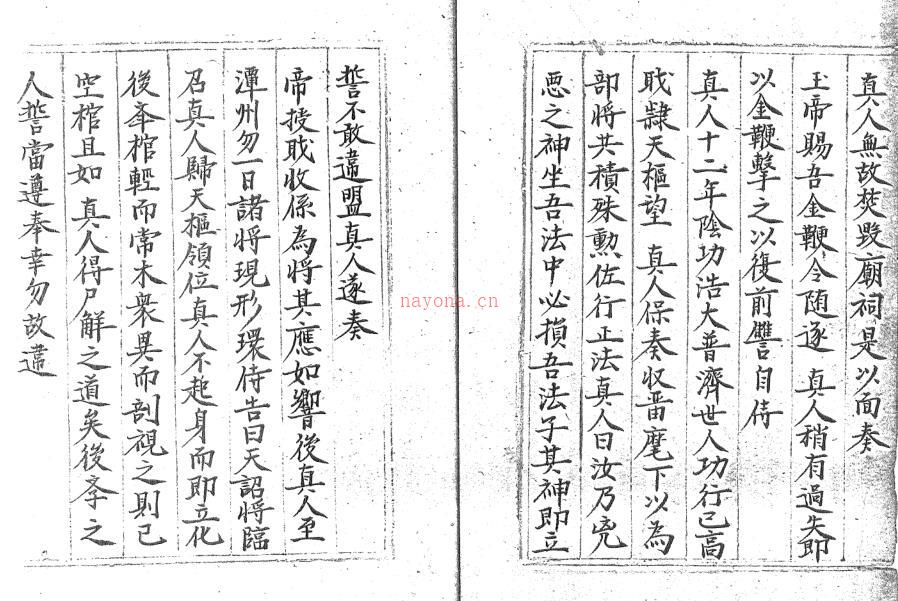 真人無故焚毀廟祠是以面奏
玉帝賜吾金鞭令随逐　真人稍有過失即
以金鞭擊之以復前讐自侍
真人十二年陰功浩大普濟世人功行已高
戝隷天樞望　真人保奏収畱麾下以為
部将共積殊勲佐行正法真人曰汝乃兇
悪之神坐吾法中必損吾法子其神即立
誓不敢違盟真人遂奏
帝授戝收係為將其應如響後真人至
潭州勿一日諸將現形環侍告曰天詔将臨
召真人歸天樞領位真人不起身而即立化
後奉棺輕而常木衆異而剖視之則已
空棺且如　真人得尸解之道矣後奉之
人誓當遵奉幸勿故違
nayona.cn